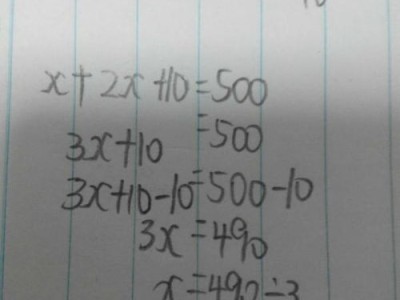 x+2x+10=500
3x+10=500
3x+10-10=500-10
3x=490
x=490÷3